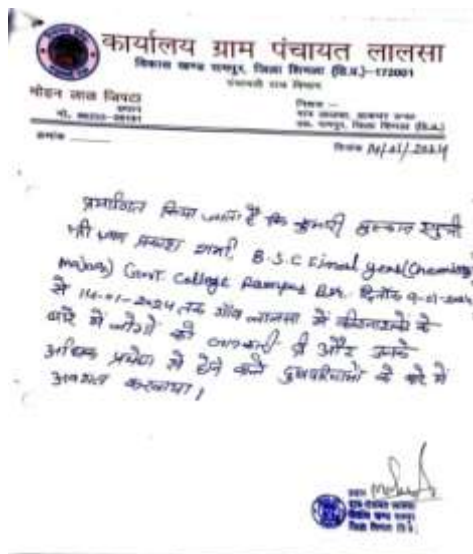 कार्यालय ग्राम पंचायत लालसा
विकास खण्ड रामपुर, जिला शिमला (हि.प्र.)–172001
पंचायती राज विभाग
मोहन लाल
प्रधान
मो.
निवास :–
गांव लालसा, डाकघर
तह. रामपुर, जिला शिमला (हि.प्र.)
क्रमांक
दिनांक 14/01/2024
प्रमाणित किया जाता है कि कुमारी मुस्कान सुपुत्री
श्री प्रकाश शर्मा, B.S.C Final year (Chemistry
Major) Govt. College Rampur Bsr. दिनांक 9-01-2024
से 14-01-2024 तक गाँव लालसा में कीटनाशकों के
बारे में लोगों को जानकारी दी और उनके
अधिक प्रयोग से होने वाले दुष्परिणामों के बारे में
अवगत करवाया।
प्रधान
ग्राम पंचायत लालसा
विकास खण्ड रामपुर
जिला शिमला हि.प्र.